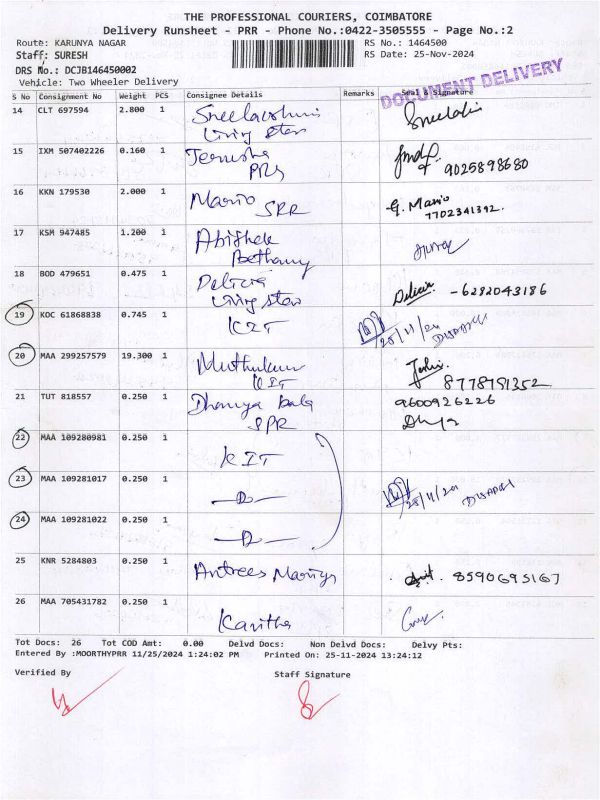 THE PROFESSIONAL COURIERS, COIMBATORE
Delivery Runsheet - PRR - Phone No.:0422-3505555 - Page No.:2
Route: KARUNYA NAGAR
RS No.: 1464500
Staff: SURESH
RS Date: 25-Nov-2024
DRS No.: DCJB146450002
Vehicle: Two Wheeler Delivery
DOCUMENT DELIVERY
S No Consignment No Weight PCS Consignee Details Remarks Seal & Signature
14 CLT 697594 2.800 1
Living Star
15 IXM 507402226 0.160 1 Jerusha
PRS 9025898680
16 KKN 179530 2.000 1 Mario G. Mario
SRR 7702341392.
17 KSM 947485 1.200 1 Abishek
Bethany
18 BOD 479651 0.475 1 Delicia
Living Star - 6282043186
19 KOC 61868838 0.745 1 KIT
20 MAA 299257579 19.300 1 Muthukumar
KIT 8778791352
21 TUT 818557 0.250 1 Dhanya bala 9600926226
SPR
22 MAA 109280981 0.250 1 KIT
23 MAA 109281017 0.250 1
24 MAA 109281022 0.250 1
25 KNR 5284803 0.250 1 8590695167
26 MAA 705431782 0.250 1 Kavitha
Tot Docs: 26 Tot COD Amt: 0.00 Delvd Docs: Non Delvd Docs: Delvy Pts:
Entered By :MOORTHYPRR 11/25/2024 1:24:02 PM Printed On: 25-11-2024 13:24:12
Verified By
Staff Signature